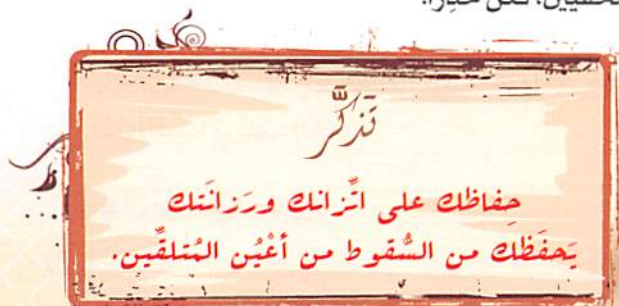 فكن حذرًا.
تَذكَّر
حِفاظك على اتِّزانك ورَزانَتك
يَحفَظك من السُّقوط من أعْيُن المُتلقِّين.